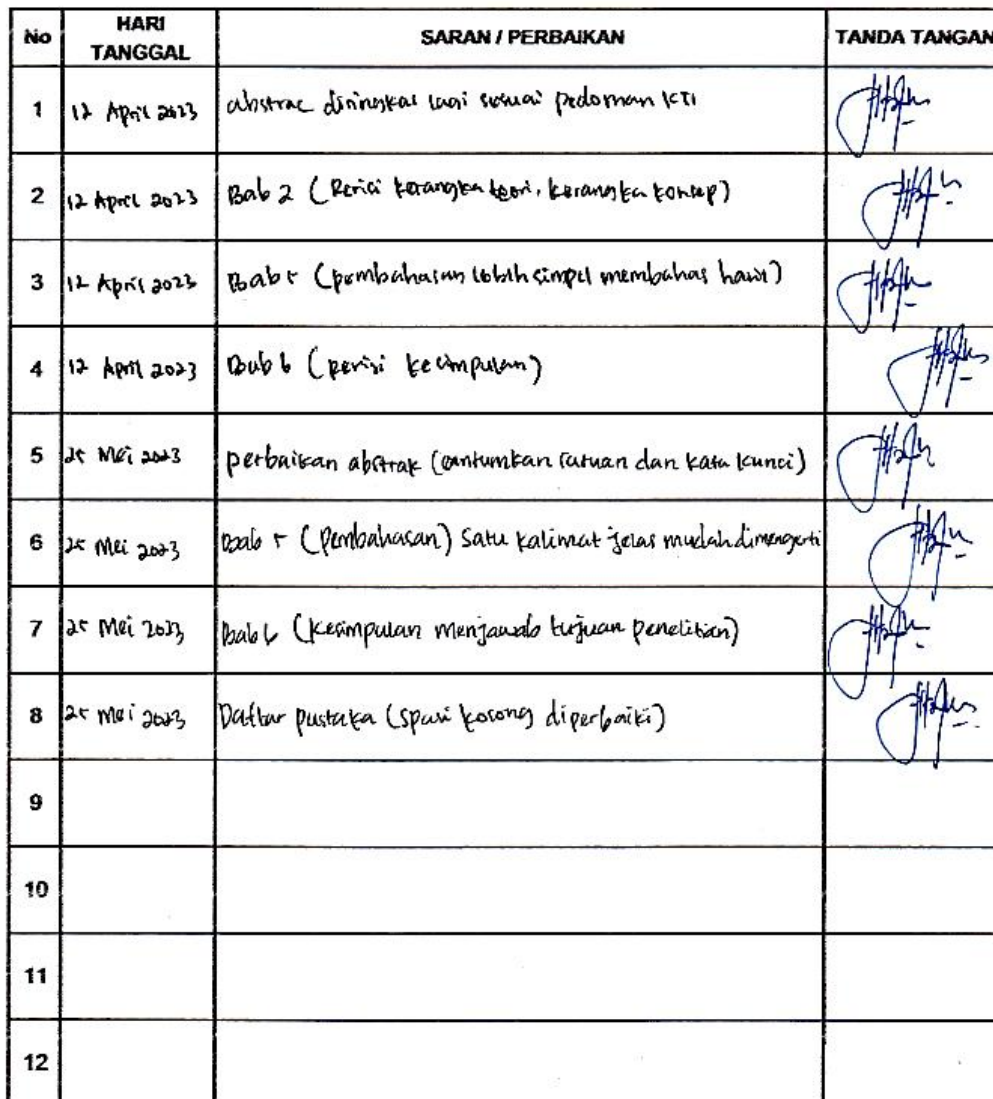 No HARI TANGGAL SARAN / PERBAIKAN TANDA TANGAN
1 12 April 2023 abstrac diringkas lagi sesuai pedoman KTI
2 12 April 2023 Bab 2 (Revisi kerangka teori, kerangka konsep)
3 12 April 2023 Bab 5 (pembahasan lebih simpel membahas hasil)
4 12 April 2023 Bab 6 (revisi kesimpulan)
5 25 Mei 2023 perbaikan abstrak (cantumkan satuan dan kata kunci)
6 25 Mei 2023 Bab 5 (Pembahasan) Satu kalimat jelas mudah dimengerti
7 25 Mei 2023 Bab 6 (Kesimpulan menjawab tujuan penelitian)
8 25 Mei 2023 Daftar pustaka (Spasi kosong diperbaiki)
9
10
11
12